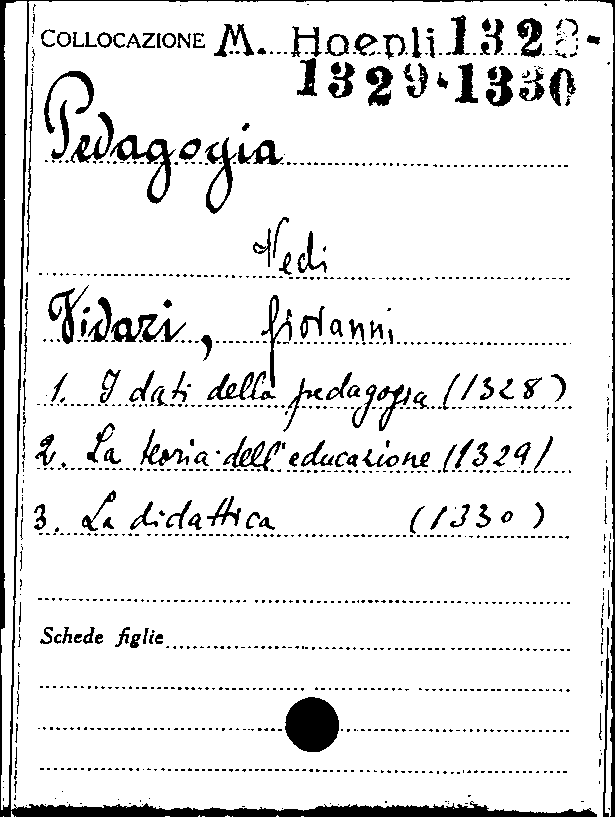 COLLOCAZIONE M. Hoepli 1328-
1329-1330
Pedagogia
Vedi
Vidari, Giovanni
1. I dati della pedagogia (1328)
2. La teoria dell'educazione (1329)
3. La didattica (1330)
Schede figlie